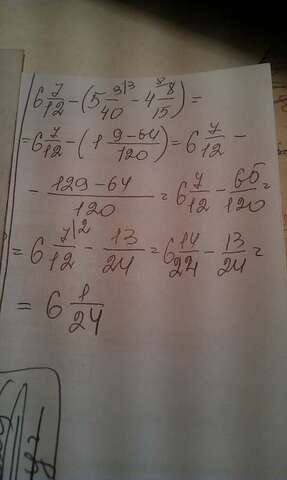 6 7/12 - (5 3/40 |3 - 4 8/15 |8) =
= 6 7/12 - (1 9-64/120) = 6 7/12 -
- 129-64/120 = 6 7/12 - 65/120 =
= 6 7/12 |2 - 13/24 = 6 14/24 - 13/24 =
= 6 1/24